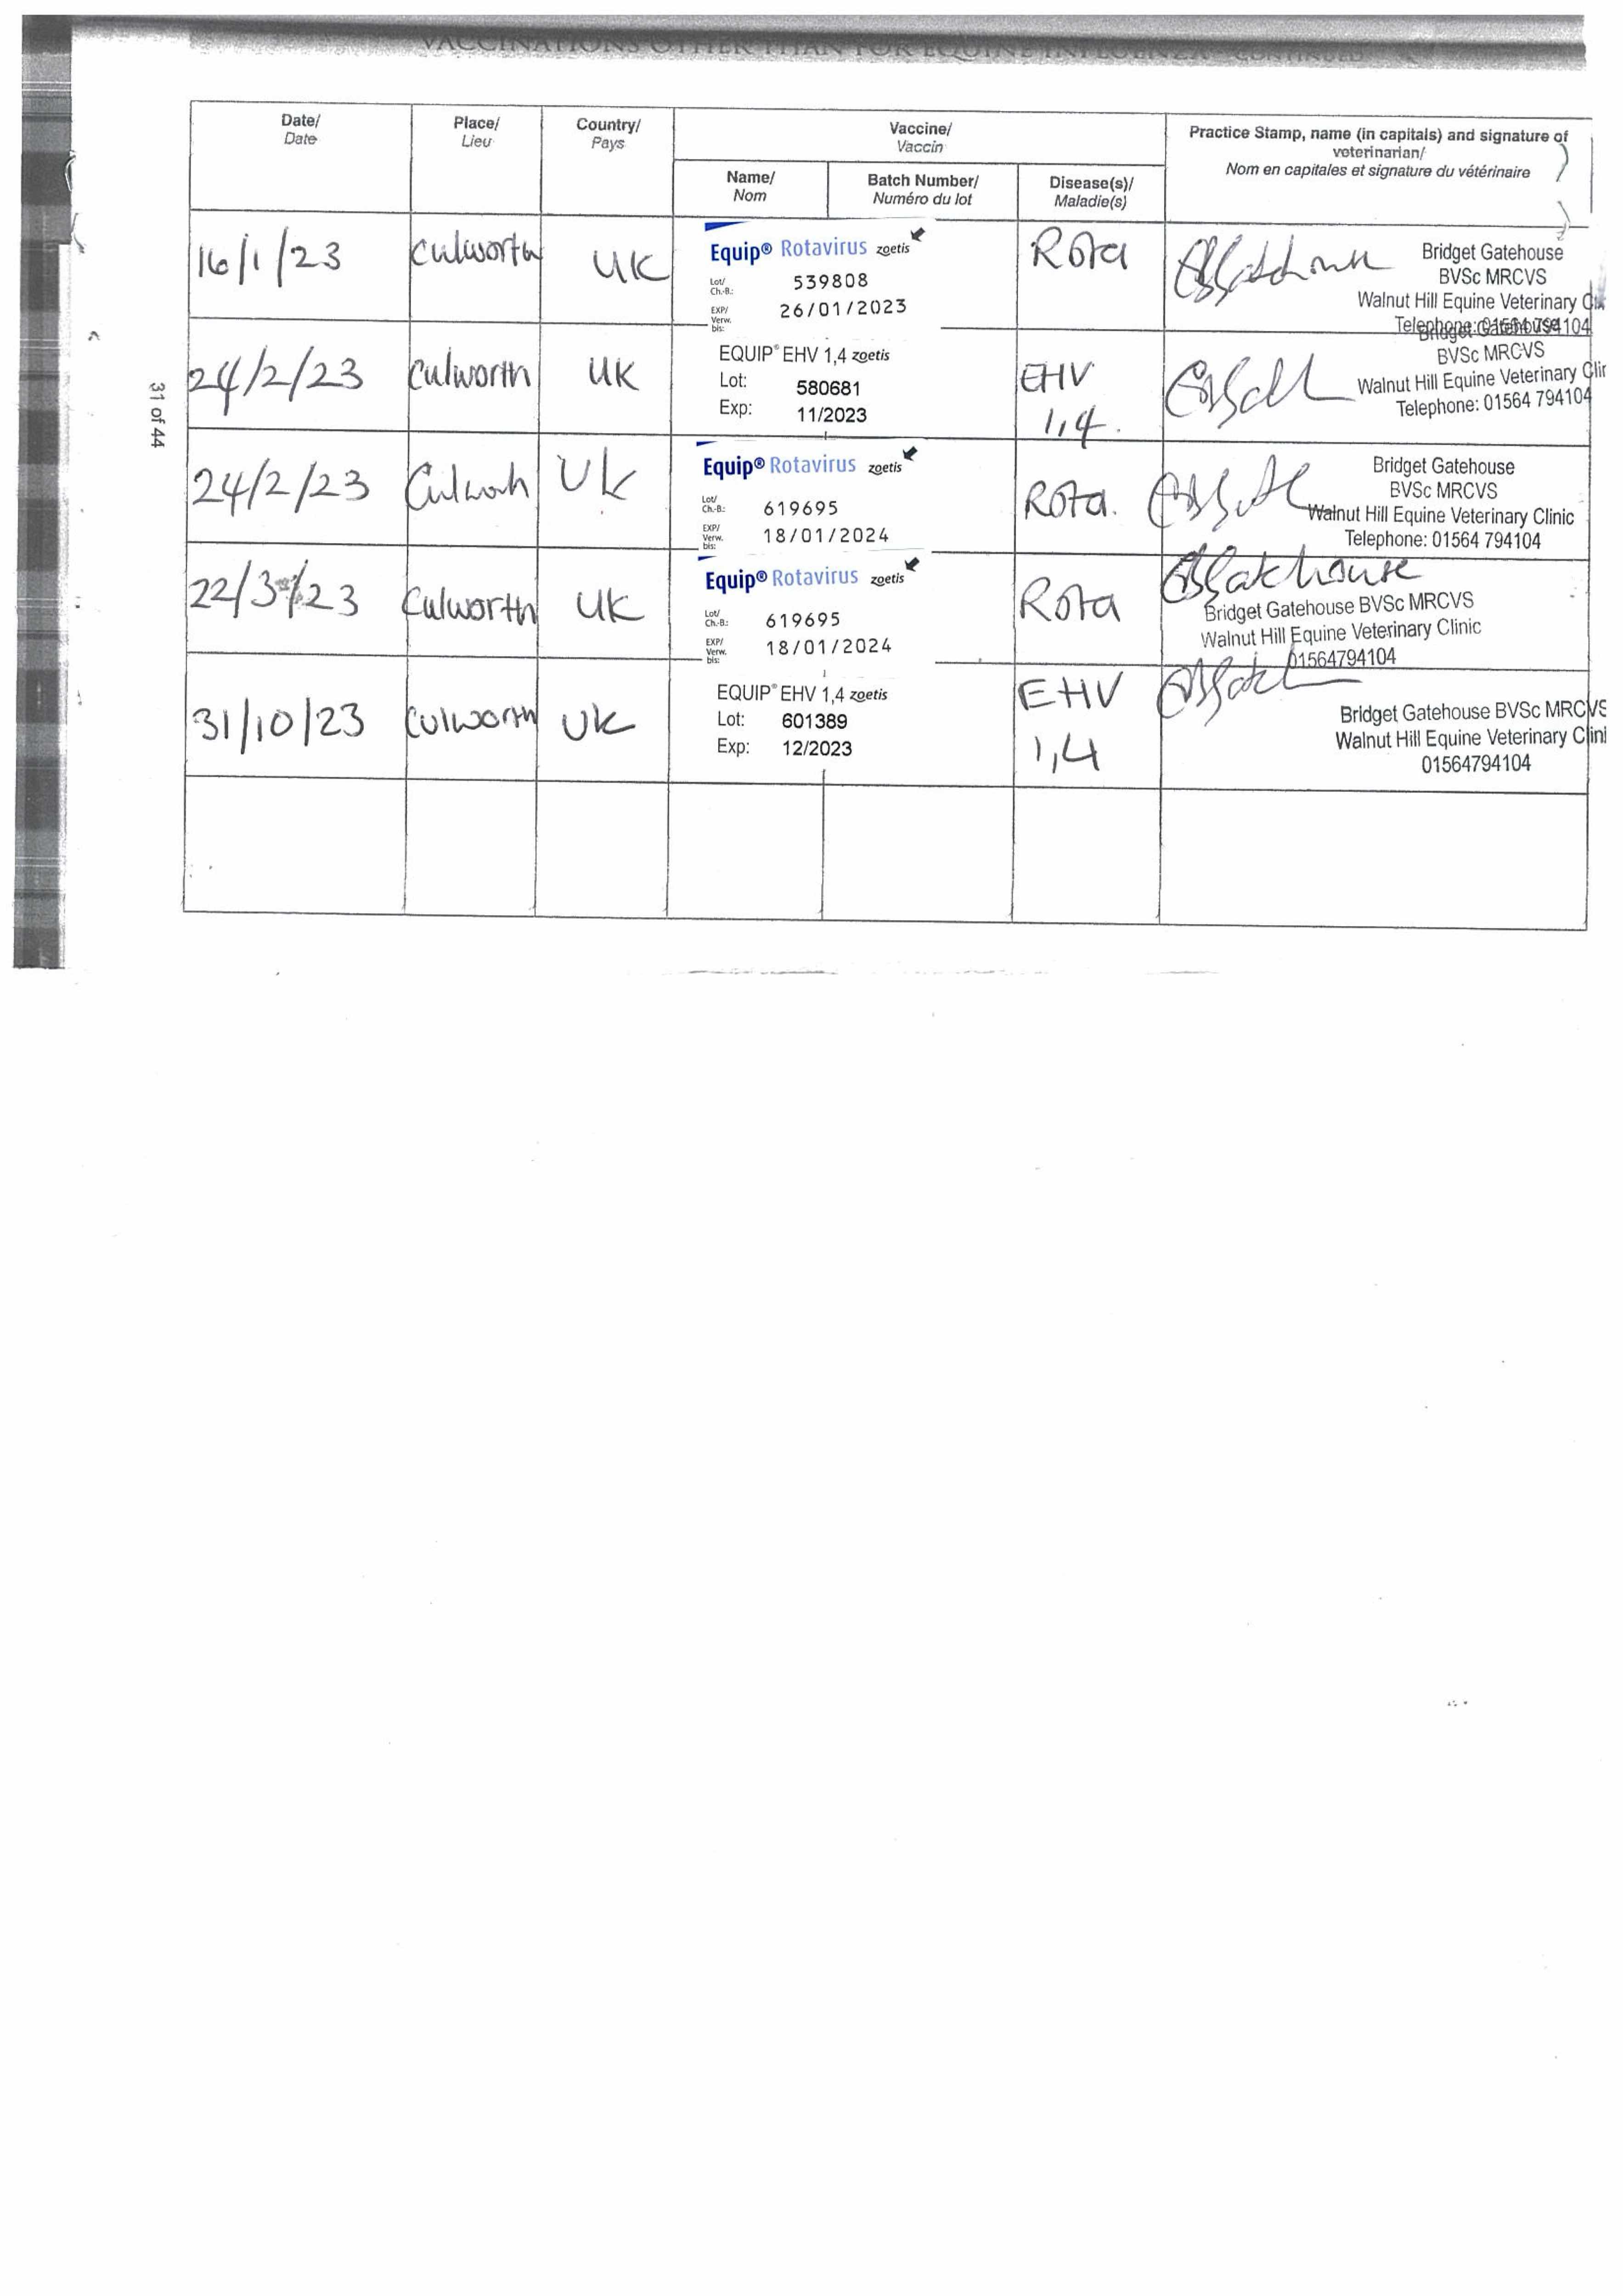 VACCINATIONS OTHER THAN FOR EQUINE INFLUENZA - CONTINUED
Date/
Date
Place/
Lieu
Country/
Pays
Vaccine/
Vaccin
Practice Stamp, name (in capitals) and signature of
veterinarian/
Nom en capitales et signature du vétérinaire
Name/
Nom
Batch Number/
Numéro du lot
Disease(s)/
Maladie(s)
16/1/23
Culworth
UK
Equip® Rotavirus zoetis
Lot/
Ch.-B.: 539808
EXP/
Verw.
bis: 26/01/2023
Rota
Bridget Gatehouse
BVSc MRCVS
Walnut Hill Equine Veterinary
Telephone: 01564 794104
24/2/23
Culworth
UK
EQUIP® EHV 1,4 zoetis
Lot: 580681
Exp: 11/2023
EHV
1,4.
Bridget Gatehouse
BVSc MRCVS
Walnut Hill Equine Veterinary Clin
Telephone: 01564 794104
24/2/23
UK
Equip® Rotavirus zoetis
Lot/
Ch.-B.: 619695
EXP/
Verw.
bis: 18/01/2024
Rota.
Bridget Gatehouse
BVSc MRCVS
Walnut Hill Equine Veterinary Clinic
Telephone: 01564 794104
22/3/23
Culworth
UK
Equip® Rotavirus zoetis
Lot/
Ch.-B.: 619695
EXP/
Verw.
bis: 18/01/2024
Rota
BGatehouse
Bridget Gatehouse BVSc MRCVS
Walnut Hill Equine Veterinary Clinic
01564794104
31/10/23
Culworth
UK
EQUIP® EHV 1,4 zoetis
Lot: 601389
Exp: 12/2023
EHV
1,4
Bridget Gatehouse BVSc MRCVS
Walnut Hill Equine Veterinary Clini
01564794104
31 of 44